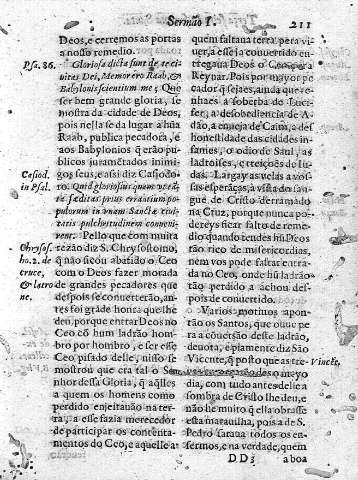 Sermão I.
211
Deos, e cerremos as portas
a nosso remedio.
Psa. 86.
Gloriosa dicta sunt de te ci
uitas Dei, Memor ero Raab, &
Babylonis scientium me; Quo
ser bem grande gloria, se
mostra da cidade de Deos,
pois nella se da lugar a hũa
Raab, publica pecadora, e
aos Babylonios q̃ erão pu-
blicos juramẽtados inimi-
gos seus, e assi diz Cassiodo-
Casiod.
in Psal.
ro. Quid gloriosius quam
populorum in vnam Sanctæ ciui-
tatis pulchritudinem conue-
nirent. Pello que com muita
Chrysos.
ho. 2. de
cruce,
& latro
ne.
rezão diz S. Chrysostomo,
q̃ não ficou abatido o Ceo
com o Deos fazer morada
de grandes pecadores que
despois se conuerterão, an-
tes foi grãde honra que lhe
deu, porque entrar Deos no
Ceo cõ hum ladrão hom-
bro por hombro, e ser esse
Ceo pisado delle, nisso se
mostrou que era tal o Sen
nhor dessa Gloria, q̃ aq̃lles
a quem os homens como
perdido enjeitauão na ter-
ra, a esse fazia merecedor
de participar os contenta-
mentos do Ceo, e aquelle a
quem faltaua terra pera vi-
uer, a esse ja conuertido en-
tregaua Deos o Ceo pera
Reynar. Pois por mayor pe-
cador q̃ sejaes, ainda que te-
nhaes a soberba de Luci-
fer, a desobediencia de A-
dão, a enueja de Caim, a des
honestidade das cidades in-
fames, o odio de Saul, as
ladroises, e treições de Iu-
das. Largay as velas a vos-
sas esperãças, a vista do san-
gue de Cristo derramado
na Cruz, porque nunca po-
dereys ficar falto de reme-
dio quando tendes hũ Deos
tão rico de misericordias,
nem vos pode faltar entra-
da no Ceo, onde hũ ladrão
tão perdido a achou des-
pois de conuertido.
Varios motiuos apon-
tão os Santos, que ouue pe
ra a cõuersão desse ladrão,
deuota, e piamente diz São
Vicente, q̃ posto que as tre-
Vincẽt.
dia, com tudo antes delle a
sombra de Cristo lhe deu, e
não he muito q̃ ella obrasse
esta marauilha, pois a de S.
Pedro saraua todos os en-
fermos, e na verdade, quem
DD3
a boa